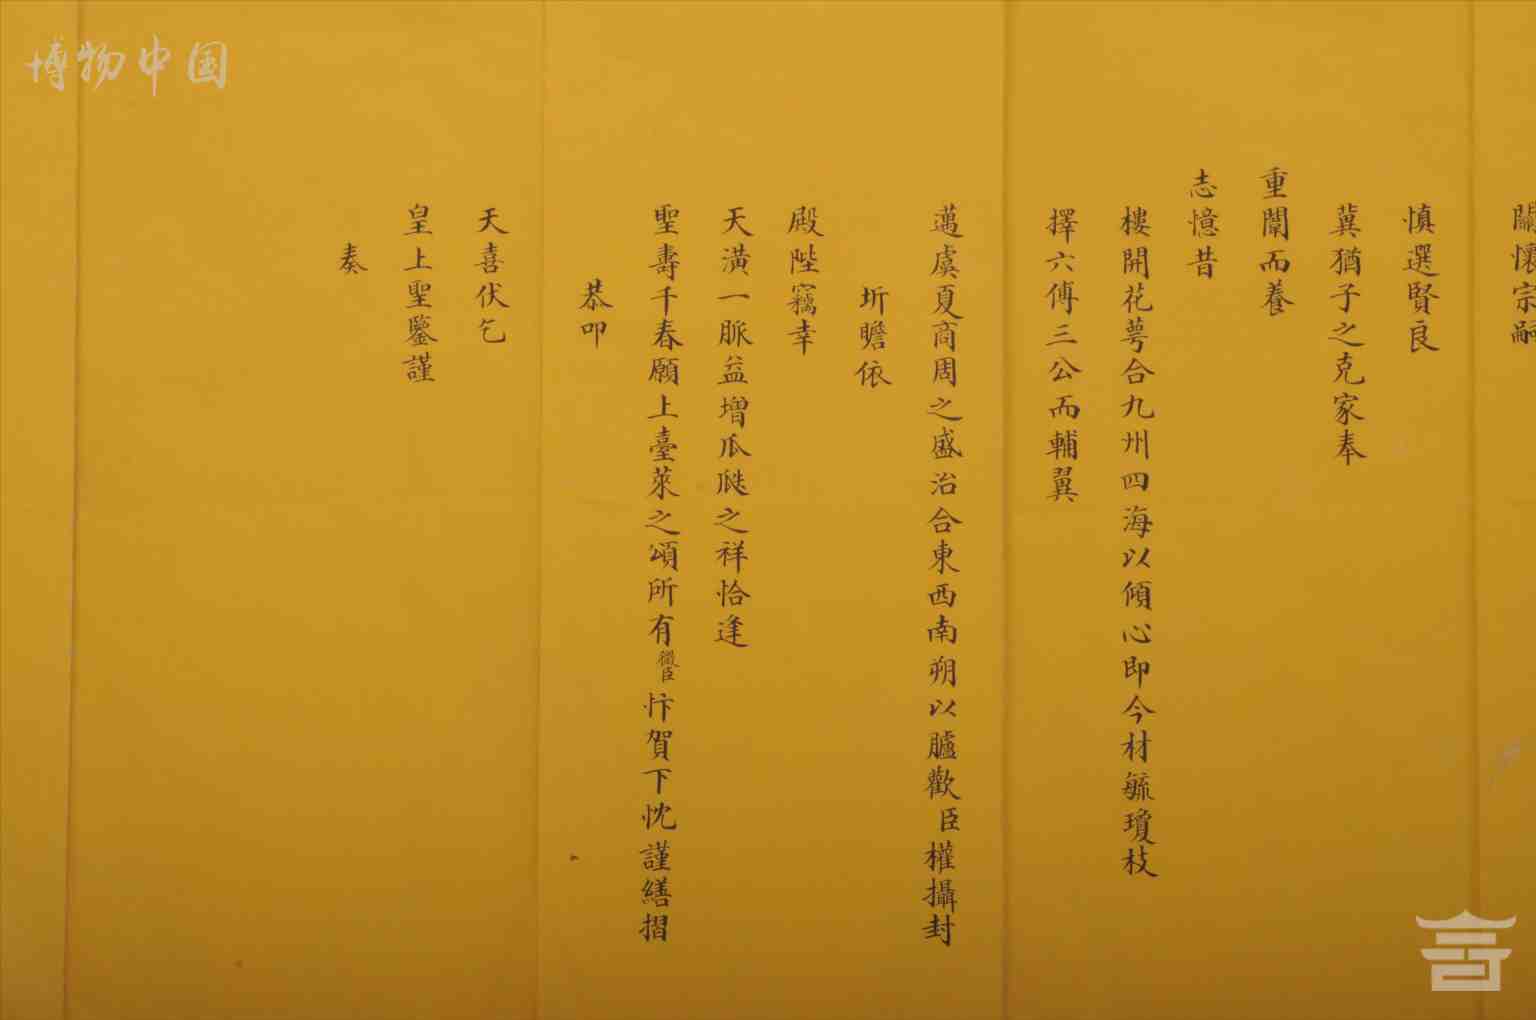 博物中国
關懷宗嗣
慎選賢良
冀猶子之克家奉
重闈而養
志憶昔
樓開花萼合九州四海以傾心即今材毓瓊枝
擇六傅三公而輔翼
邁虞夏商周之盛治合東西南朔以臚歡臣權攝封
圻瞻依
殿陛竊幸
天潢一脈益增瓜瓞之祥恰逢
聖壽千春願上臺萊之頌所有微臣忭賀下忱謹繕摺
恭叩
天喜伏乞
皇上聖鑒謹
奏